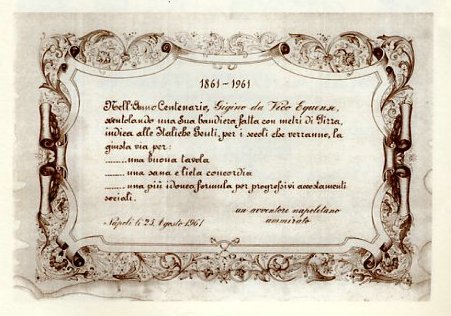 1861-1961
Nell'Anno Centenario, Gigino da Vico Equense,
sventolando una Sua bandiera fatta con metri di Pizza,
indica alle Italiche Genti, per i secoli che verranno, la
giusta via per:
........ una buona tavola
........ una sana e lieta concordia
........ una più idonea formula per progressivi accostamenti
sociali.
un avventore napoletano
ammirato
Napoli li 23 Agosto 1961